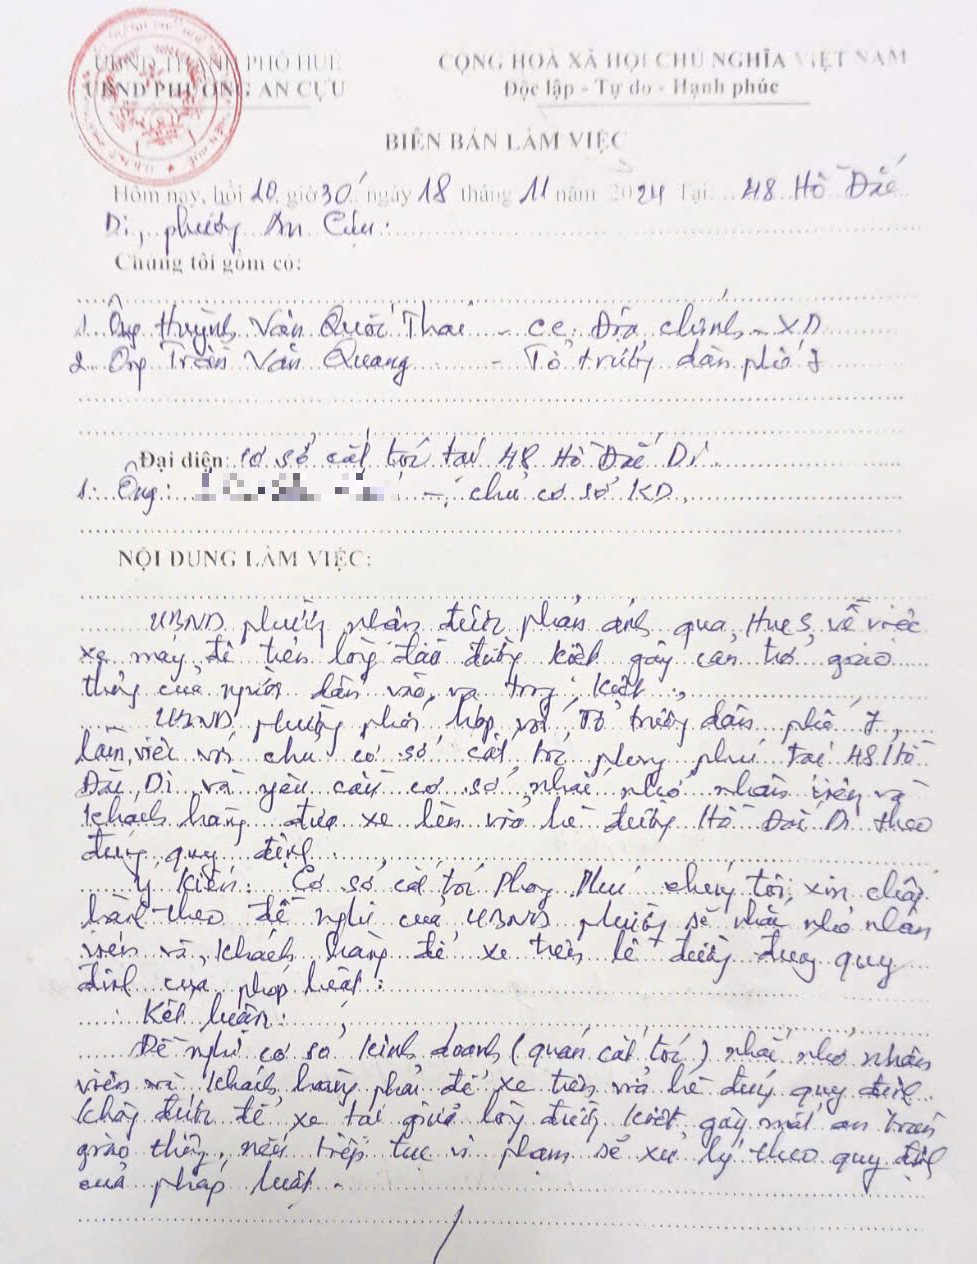 UBND THÀNH PHỐ HUẾ
UBND PHƯỜNG AN CỰU
CỘNG HOÀ XÃ HỘI CHỦ NGHĨA VIỆT NAM
Độc lập - Tự do - Hạnh phúc
BIÊN BẢN LÀM VIỆC
Hôm nay, hồi 10 giờ 30' ngày 18 tháng 11 năm 2024 Tại 48 Hồ Đắc
Di, phường An Cựu.
Chúng tôi gồm có:
1. Ông Huỳnh Văn Quốc Thái - CC Địa chính - XD
2. Ông Trần Văn Quang - Tổ trưởng dân phố 7
Đại diện: cơ sở cắt tóc tại 48 Hồ Đắc Di.
1. Ông: - chủ cơ sở KD.
NỘI DUNG LÀM VIỆC:
UBND phường nhận được phản ánh qua HueS về việc
xe máy để trên lòng đường kiệt gây cản trở giao
thông của người dân vào ra trong kiệt.
- UBND phường phối hợp với Tổ trưởng dân phố 7
làm việc với chủ cơ sở cắt tóc phong phú tại 48 Hồ
Đắc Di và yêu cầu cơ sở nhắc nhở nhân viên và
khách hàng đưa xe lên vỉa hè đường Hồ Đắc Di theo
đúng quy định
Ý kiến: Cơ sở cắt tóc Phong Phú chúng tôi xin chấp
hành theo đề nghị của UBND phường sẽ nhắc nhở nhân
viên và khách hàng để xe trên lề đường đúng quy
định của pháp luật.
Kết luận:
Đề nghị cơ sở kinh doanh (quán cắt tóc) nhắc nhở nhân
viên và khách hàng phải để xe trên vỉa hè đúng quy định
không được để xe tại giữa lòng đường kiệt gây mất an toàn
giao thông, nếu tiếp tục vi phạm sẽ xử lý theo quy định
của pháp luật.